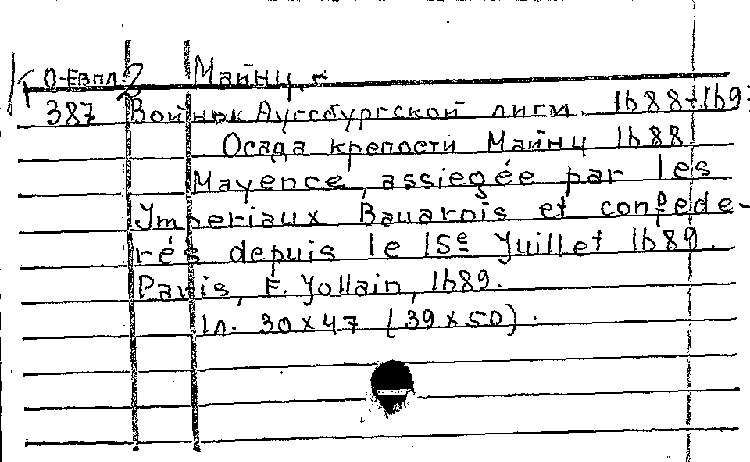 К О-Евпл 2 Майнц, к
387 Войны Аугсбургской лиги. 1688-1697
Осада крепости Майнц 1688
Mayence, assiegée par les
Imperiaux Bavarois et confede-
rés depuis le 15e Juillet 1689.
Paris, F. Jollain, 1689.
1л. 30x47 (39x50).